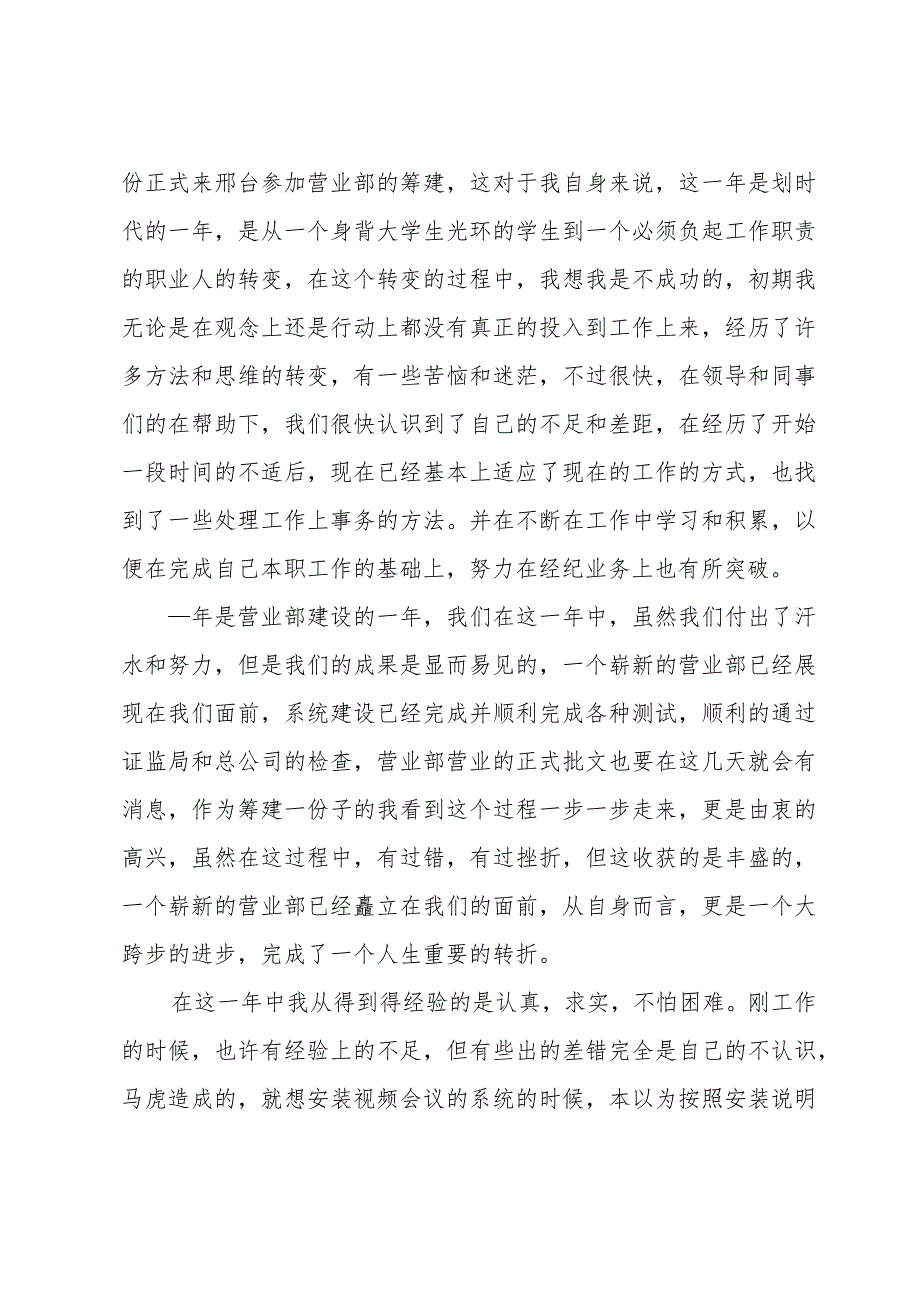 份正式来邢台参加营业部的筹建，这对于我自身来说，这一年是划时
代的一年，是从一个身背大学生光环的学生到一个必须负起工作职责
的职业人的转变，在这个转变的过程中，我想我是不成功的，初期我
无论是在观念上还是行动上都没有真正的投入到工作上来，经历了许
多方法和思维的转变，有一些苦恼和迷茫，不过很快，在领导和同事
们的在帮助下，我们很快认识到了自己的不足和差距，在经历了开始
一段时间的不适后，现在已经基本上适应了现在的工作的方式，也找
到了一些处理工作上事务的方法。并在不断在工作中学习和积累，以
便在完成自己本职工作的基础上，努力在经纪业务上也有所突破。
—年是营业部建设的一年，我们在这一年中，虽然我们付出了汗
水和努力，但是我们的成果是显而易见的，一个崭新的营业部已经展
现在我们面前，系统建设已经完成并顺利完成各种测试，顺利的通过
证监局和总公司的检查，营业部营业的正式批文也要在这几天就会有
消息，作为筹建一份子的我看到这个过程一步一步走来，更是由衷的
高兴，虽然在这过程中，有过错，有过挫折，但这收获的是丰盛的，
一个崭新的营业部已经矗立在我们的面前，从自身而言，更是一个大
跨步的进步，完成了一个人生重要的转折。
在这一年中我从得到得经验的是认真，求实，不怕困难。刚工作
的时候，也许有经验上的不足，但有些出的差错完全是自己的不认识，
马虎造成的，就想安装视频会议的系统的时候，本以为按照安装说明